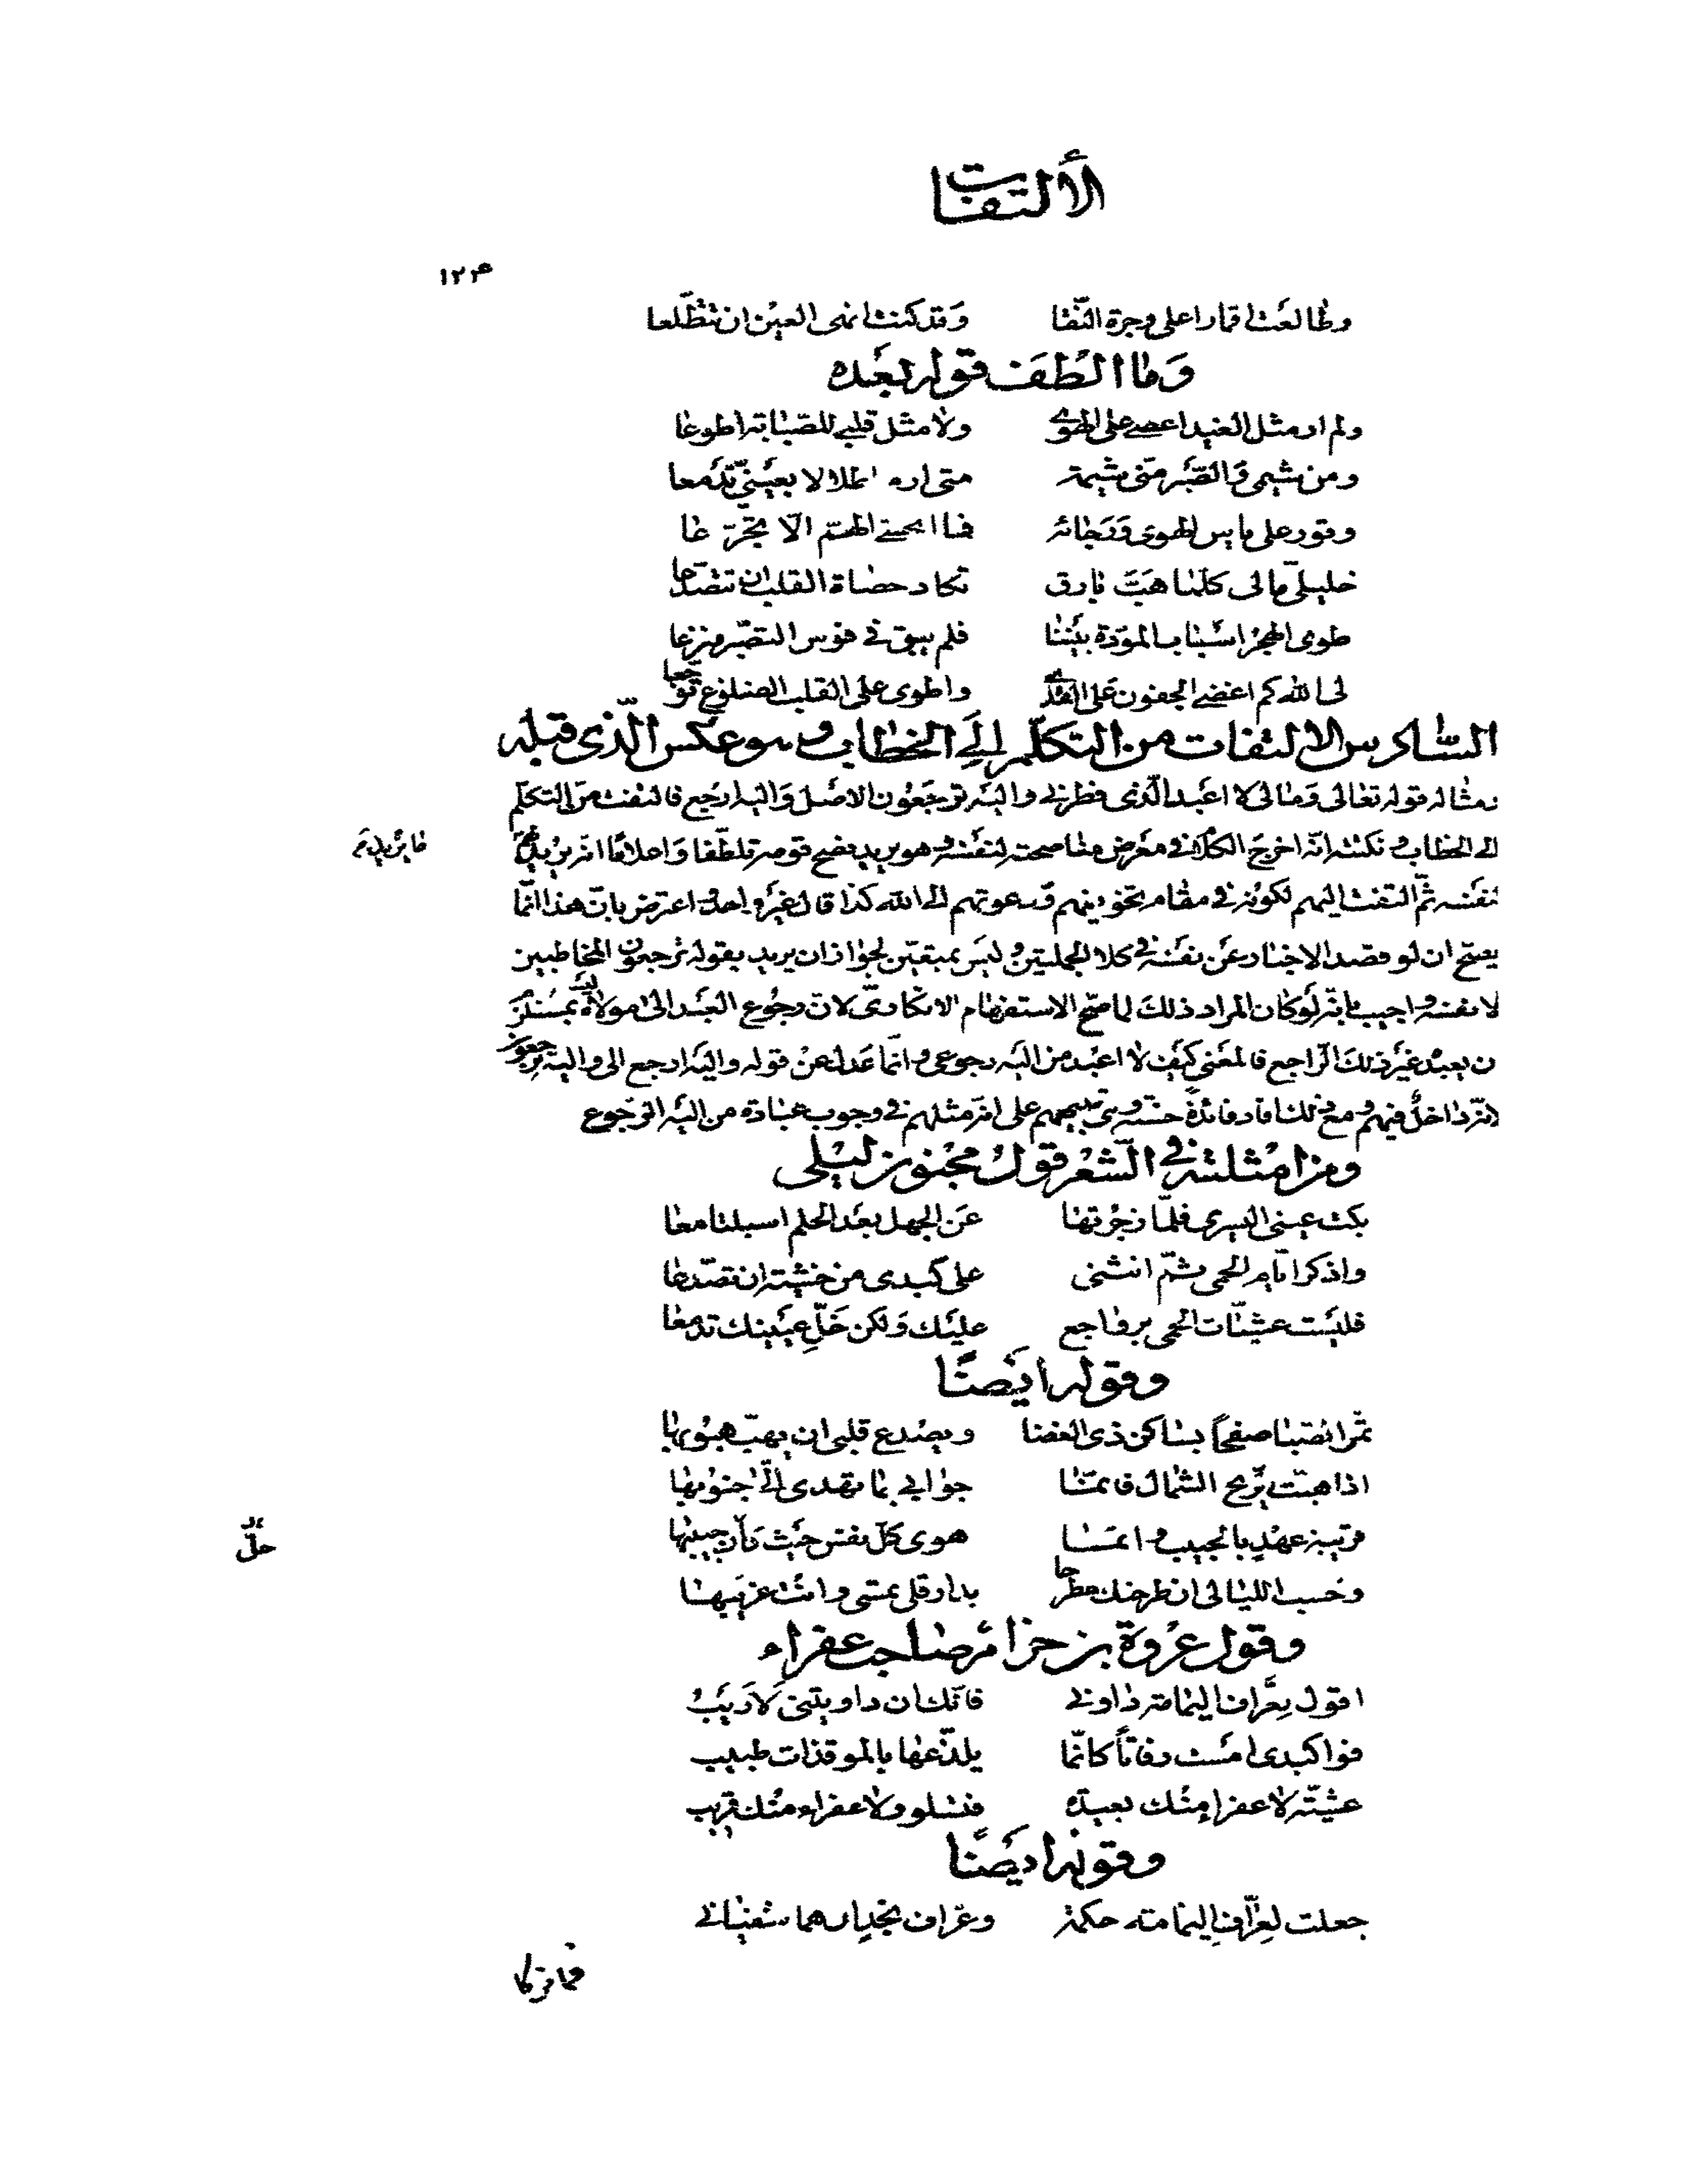 الألتفات
١٢٣
وطالعت اقمارا على وجرة النقا وقد كنت انهى العين ان تتطلعا
وما الطف قوله بعده
ولم ار مثل الغيد اعصى على الهوى ولا مثل قلبي للصبابة اطوعا
ومن شيمي والصبر مني شيمة متى ار اطلالا بعيني تدمعا
وقور على يأس الهوى ورجائه فما اتحسى الهم الا تجرعا
خليلي مالي كلما هب بارق تكاد حصاة القلب ان تتصدعا
طوى الهجر اسباب المودة بيننا فلم يبق في قوس التصبر منزعا
لى الله كم اغضى الجفون على القذى واطوى على القلب الضلوع توجعا
السادس الالتفات من التكلم الى الخطاب وهو عكس الذى قبله
مثاله قوله تعالى ومالى لا اعبد الذى فطرنى واليه ترجعون الاصل واليه ارجع فالتفت من التكلم
الى الخطاب ونكتته انه اخرج الكلام في معرض مناصحته لنفسه وهو يريد نصح قومه تلطفا واعلاما انه يريد لهم
ما يريد
لنفسه ثم التفت اليهم لكونه في مقام تخويفهم ودعوتهم الى الله كذا قال غير واحد واعترض بان هذا انما
يصح ان لو قصد الاخبار عن نفسه في كلا الجملتين وليس بمتعين لجواز ان يريد بقوله ترجعون المخاطبين
لا نفسه واجيب بانه لو كان المراد ذلك لما صح الاستفهام الانكارى لان رجوع العبد الى مولاه ليس بمستلزم
ان يعبده غير ذلك الراجع فالمعنى كيف لا اعبد من اليه رجوعي وانما عدل عن قوله واليه ارجع الى واليه ترجعون
لانه داخل فيهم ومع ذلك افاد فائدة حسنة وهى تنبيههم على انه مثلهم في وجوب عبادة من اليه الرجوع
ومن امثلته في الشعر قول مجنون ليلى
بكت عينى اليسرى فلما زجرتها عن الجهل بعد الحلم اسبلتا معا
واذكر ايام الحمى ثم انثنى على كبدى من خشية ان تصدعا
فليست عشيات الحمى برواجع عليك ولكن خل عينيك تدمعا
وقوله ايضًا
تمر الصبا صفحًا بساكن ذى الغضا ويصدع قلبى ان يهب هبوبها
اذا هبت الريح الشمال فانما جوابي بما تهدى الى جنوبها
قريبة عهد بالحبيب وانما هوى كل نفس حيث كان حبيبها
حل
وحسب الليالى ان طرحنك مطرحا بدار قلى تمسى وانت غريبها
وقول عروة بن حزام صاحب عفراء
اقول لعراف اليمامة داونى فانك ان داويتنى لاريب
فوا كبدى امست رفاتًا كانما يلذعها بالموقذات طبيب
عشية لا عفراء منك بعيدة فتسلو ولا عفراء منك قريب
وقوله ايضًا
جعلت لعراف اليمامة حكمة وعراف نجد ان هما شفيانى
فما تركا